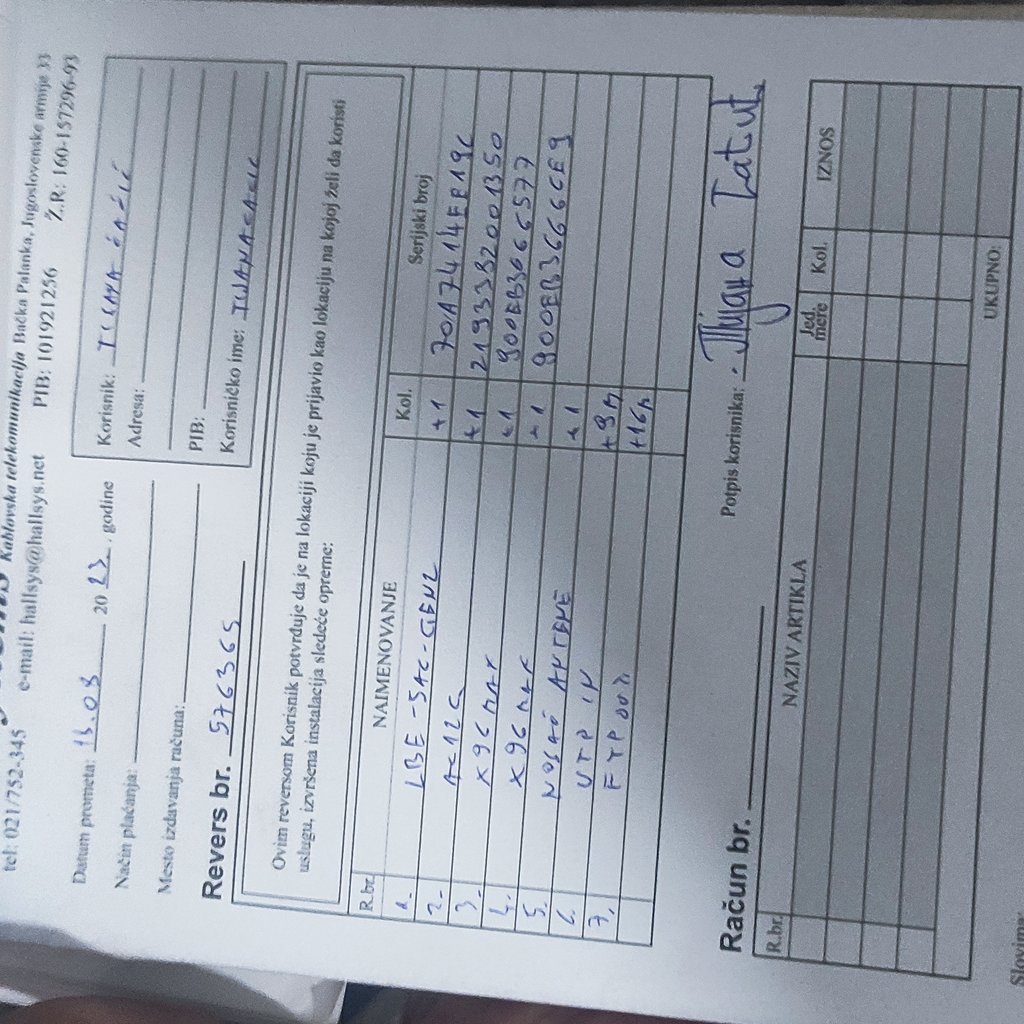 Kablovska telekomunikacija Bačka Palanka, Jugoslovenske armije 33
tel: 021/752-345 e-mail: hallsys@hallsys.net PIB: 101921256 Ž.R: 160-157296-93
Datum prometa: 2023. godine
Način plaćanja:
Mesto izdavanja računa:
Korisnik:
Adresa:
PIB:
Korisničko ime:
Revers br. 576365
Ovim reversom Korisnik potvrđuje da je na lokaciji koju je prijavio kao lokaciju na kojoj želi da koristi
uslugu, izvršena instalacija sledeće opreme:
R.br. NAIMENOVANJE Kol. Serijski broj
1. LBE-5AC-GEN2 +1 70A7414EE19C
2. AC12G +1 2193392001350
3. X96 MAX +1 900EB3066577
4. X96 MAX +1 900EB36666CE9
5. NOSAČ ANTENE +1
6. UTP +9m
7. FTP +16m
Potpis korisnika:
Račun br.
R.br. NAZIV ARTIKLA Jed. mere Kol. IZNOS
UKUPNO:
Slovima: